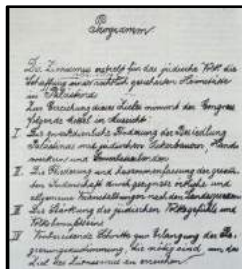 Programm
Der Zionismus erstrebt für das jüdische Volk die
Schaffung einer rechtlich gesicherten Heimstätte
in Palästina
Zur Erreichung dieses Zieles nimmt der Congress
folgende Mittel in Aussicht:
I. Die zweckdienliche Förderung der Besiedlung
Palästinas mit jüdischen Ackerbauern, Hand
werkern und Gewerbetreibenden.
II. Die Gliederung und Zusammenfassung der gesam
ten Judenschaft durch geeignete örtliche und
allgemeine Veranstaltungen nach den Landesgesetzen
III. Die Stärkung des jüdischen Volksgefühls und
Volksbewusstseins
IV Vorbereitende Schritte zur Erlangung der Re
gierungszustimmung, die nötig sind, um das
Ziel des Zionismus zu erreichen